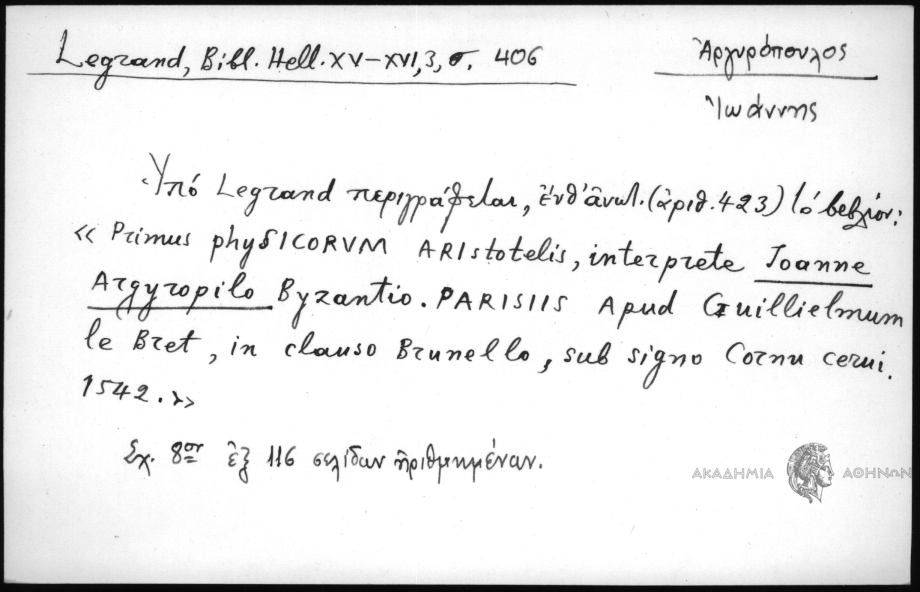 Legrand, Bibl. Hell. XV–XVI, 3, σ. 406
Ἀργυρόπουλος
Ἰωάννης
Ὑπό Legrand περιγράφεται, ἐνθ' ἀνωτ. (ἀριθ. 423) τό βιβλίον:
« Primus phySICORVM ARIstotelis, interprete Ioanne
Argyropilo Byzantio. PARISIIS Apud Guillielmum
le Bret, in clauso Brunello, sub signo Cornu cerui.
1542. »
Σχ. 8ον ἐξ 116 σελίδων ἠριθμημένων.
ΑΚΑΔΗΜΙΑ ΑΘΗΝΩΝ